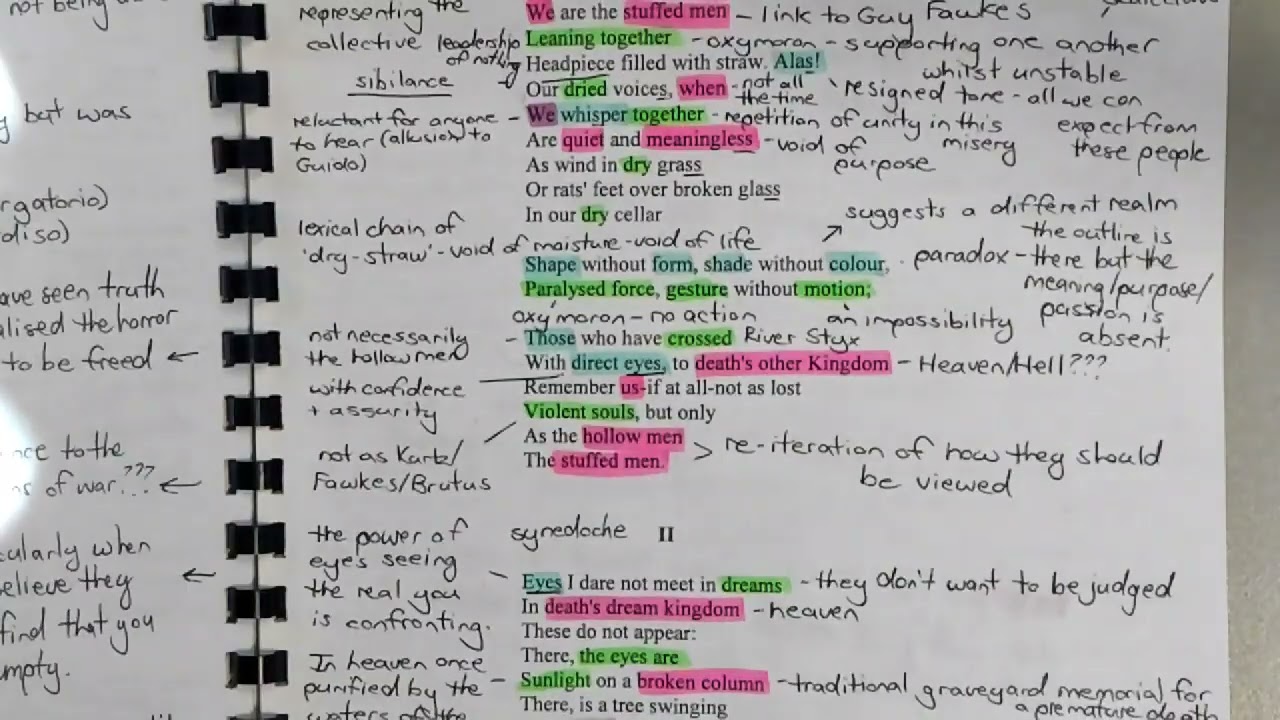 not being
y but was
rgatorio)
diso)
ave seen truth
alised the horror
to be freed ←
nce to the
ns of war??? ←
cularly when
elieve they ←
find that you
mpty.
representing the
collective leadership of nothing
sibilance
reluctant for anyone -
to hear (allusion to
Guido)
lexical chain of
'dry-straw' - void of moisture - void of life
not necessarily -
the hollow men
with confidence
+ assurity
not as Kurtz/
Fawkes/Brutus
the power of
eyes seeing
the real you
is confronting.
In heaven once -
purified by the
waters of the
We are the stuffed men - link to Guy Fawkes
Leaning together - oxymoron - supporting one another
whilst unstable
Headpiece filled with straw. Alas!
Our dried voices, when - not all the time
resigned tone - all we can
expect from
these people
We whisper together - repetition of unity in this
misery
Are quiet and meaningless - void of
purpose
As wind in dry grass
Or rats' feet over broken glass
In our dry cellar
suggests a different realm
Shape without form, shade without colour,
paradox - the outline is
there but the
meaning/purpose/
passion is
absent.
Paralysed force, gesture without motion;
oxymoron - no action
an impossibility
Those who have crossed River Styx
With direct eyes, to death's other Kingdom - Heaven/Hell???
Remember us-if at all-not as lost
Violent souls, but only
As the hollow men
The stuffed men.
> re-iteration of how they should
be viewed
synedoche II
Eyes I dare not meet in dreams - they don't want to be judged
In death's dream kingdom - heaven
These do not appear:
There, the eyes are
Sunlight on a broken column - traditional graveyard memorial for
a premature death
There, is a tree swinging